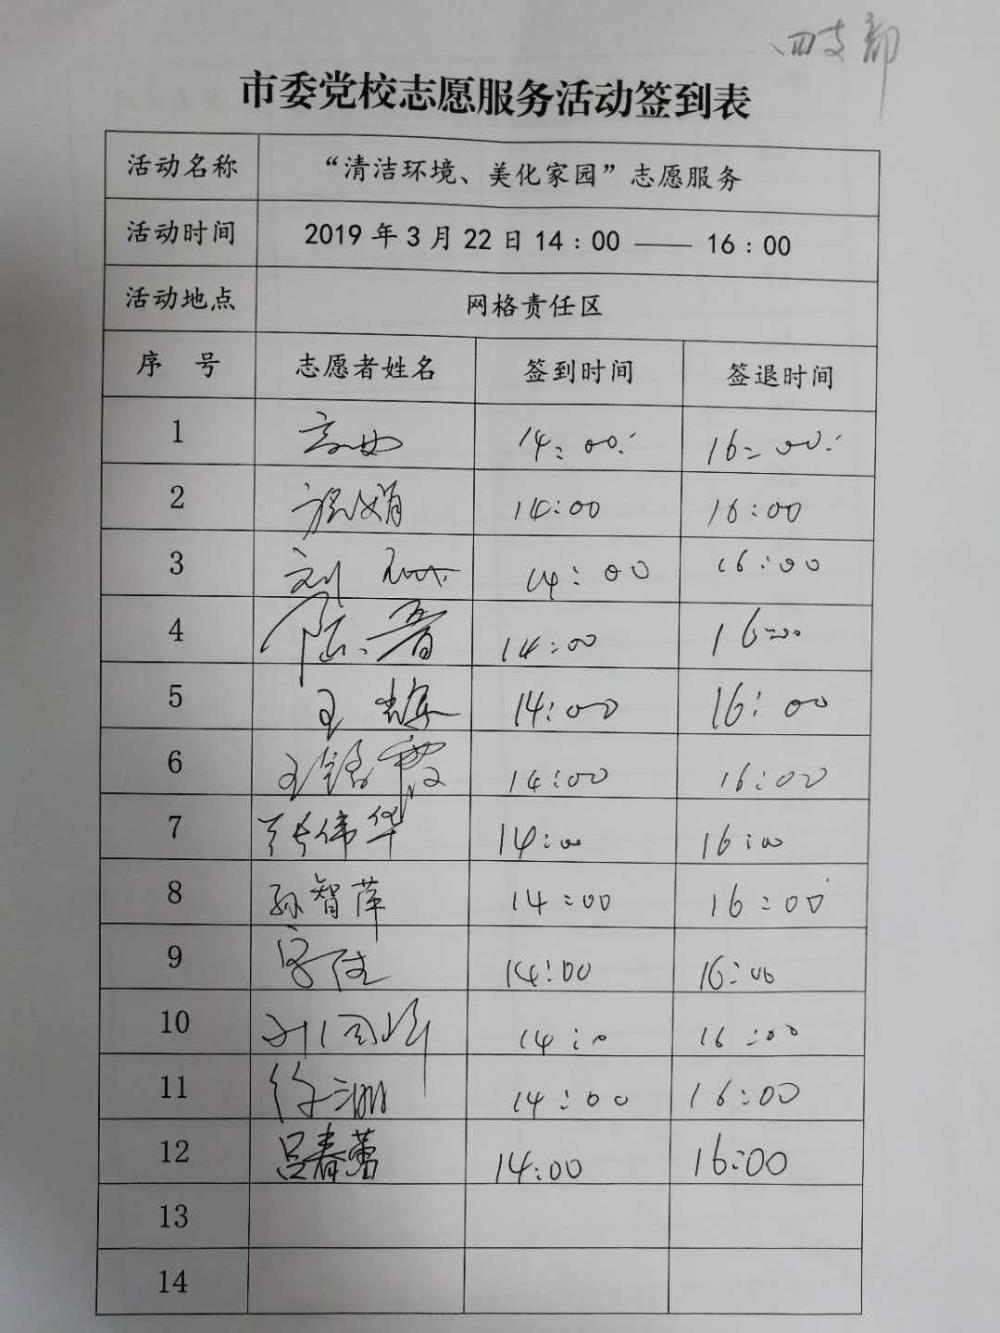 四支部
市委党校志愿服务活动签到表
活动名称 “清洁环境、美化家园”志愿服务
活动时间 2019年3月22日14:00 —— 16:00
活动地点 网格责任区
序 号 志愿者姓名 签到时间 签退时间
1 14:00 16:00
2 14:00 16:00
3 刘 14:00 16:00
4 陆晋 14:00 16:00
5 王 14:00 16:00
6 王银霞 14:00 16:00
7 张伟华 14:00 16:00
8 孙智萍 14:00 16:00
9 14:00 16:00
10 14:0 16:00
11 徐 14:00 16:00
12 吕春蕾 14:00 16:00
13
14